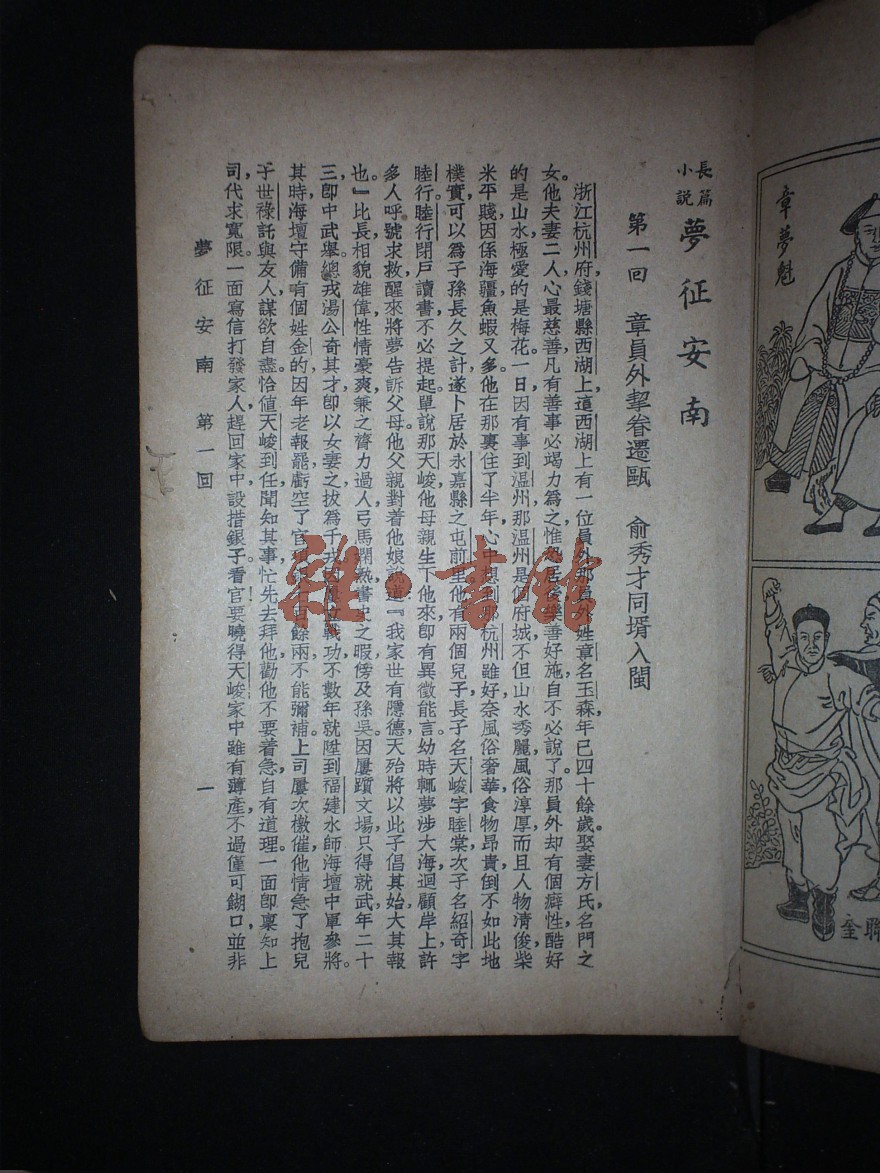 長篇小說 夢征安南
第一回 章員外挈眷遷甌 俞秀才同壻入閩
浙江杭州府,錢塘縣西湖上,這西湖上有一位員外,那員外姓章名玉森,年已四十餘歲。娶妻方氏,名門之
女。他夫妻二人,心最慈善,凡有善事,必竭力爲之,惟恐居後,樂善好施,自不必說了。那員外却有個癖性,酷好
的是山水,極愛的是梅花。一日因有事到温州,那温州是個府城,不但山水秀麗,風俗淳厚,而且人物清俊,柴
米平賤,因係海疆,魚蝦又多。他在那裏住了半年,心中想到那杭州雖好,奈風俗奢華,食物昂貴,倒不如此地
樸實,可以爲子孫長久之計,遂卜居於永嘉縣之屯前里。他有兩個兒子,長子名天峻,字睦棠,次子名紹奇,字
睦行。睦行閉戶讀書,不必提起。單說那天峻,他母親生下他來,卽有異徵,能言幼時,輒夢涉大海,迴顧岸上許
多人呼號求救,醒來將夢告訴父母。他父親對着他娘說道:『我家世有隱德,天殆將以此子倡其始,大其報
也。』比長,相貌雄偉,性情豪爽,兼之膂力過人,弓馬嫻熟,書史之暇,傍及孫吳。因屢躓文場,只得就武,年二十
三,卽中武舉。總戎湯公奇其才,卽以女妻之,拔爲千戎,因屢立戰功,不數年,就陞到福建水師海壇中軍參將。
其時海壇守備有個姓金的,因年老報罷,虧空了官項銀百餘兩,不能彌補。上司屢次檄催,他情急了,抱兒
子世祿託與友人,謀欲自盡。恰值天峻到任,聞知其事,忙先去拜他,勸他不要着急,自有道理。一面卽稟知上
司,代求寬限。一面寫信打發家人,趕回家中,設措銀子。看官!要曉得天峻家中雖有薄產,不過僅可餬口,並非
夢征安南 第一回 一
章夢魁
聯奎
雜·書館